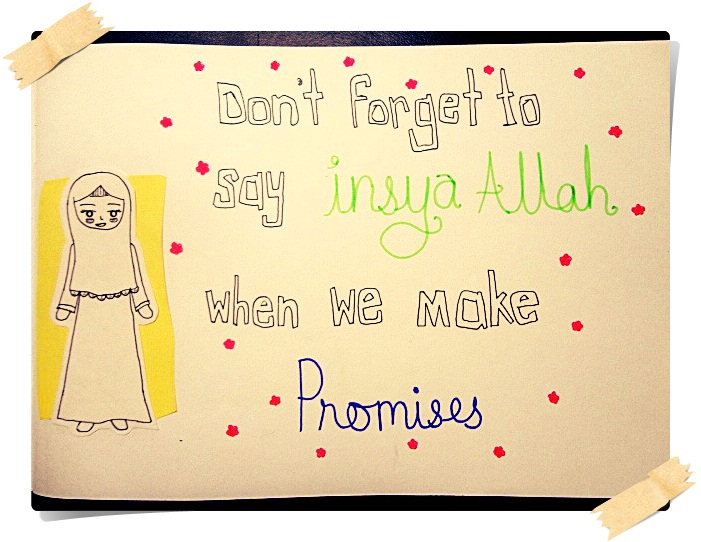 Don't forget to
say insya Allah
when we make
Promises